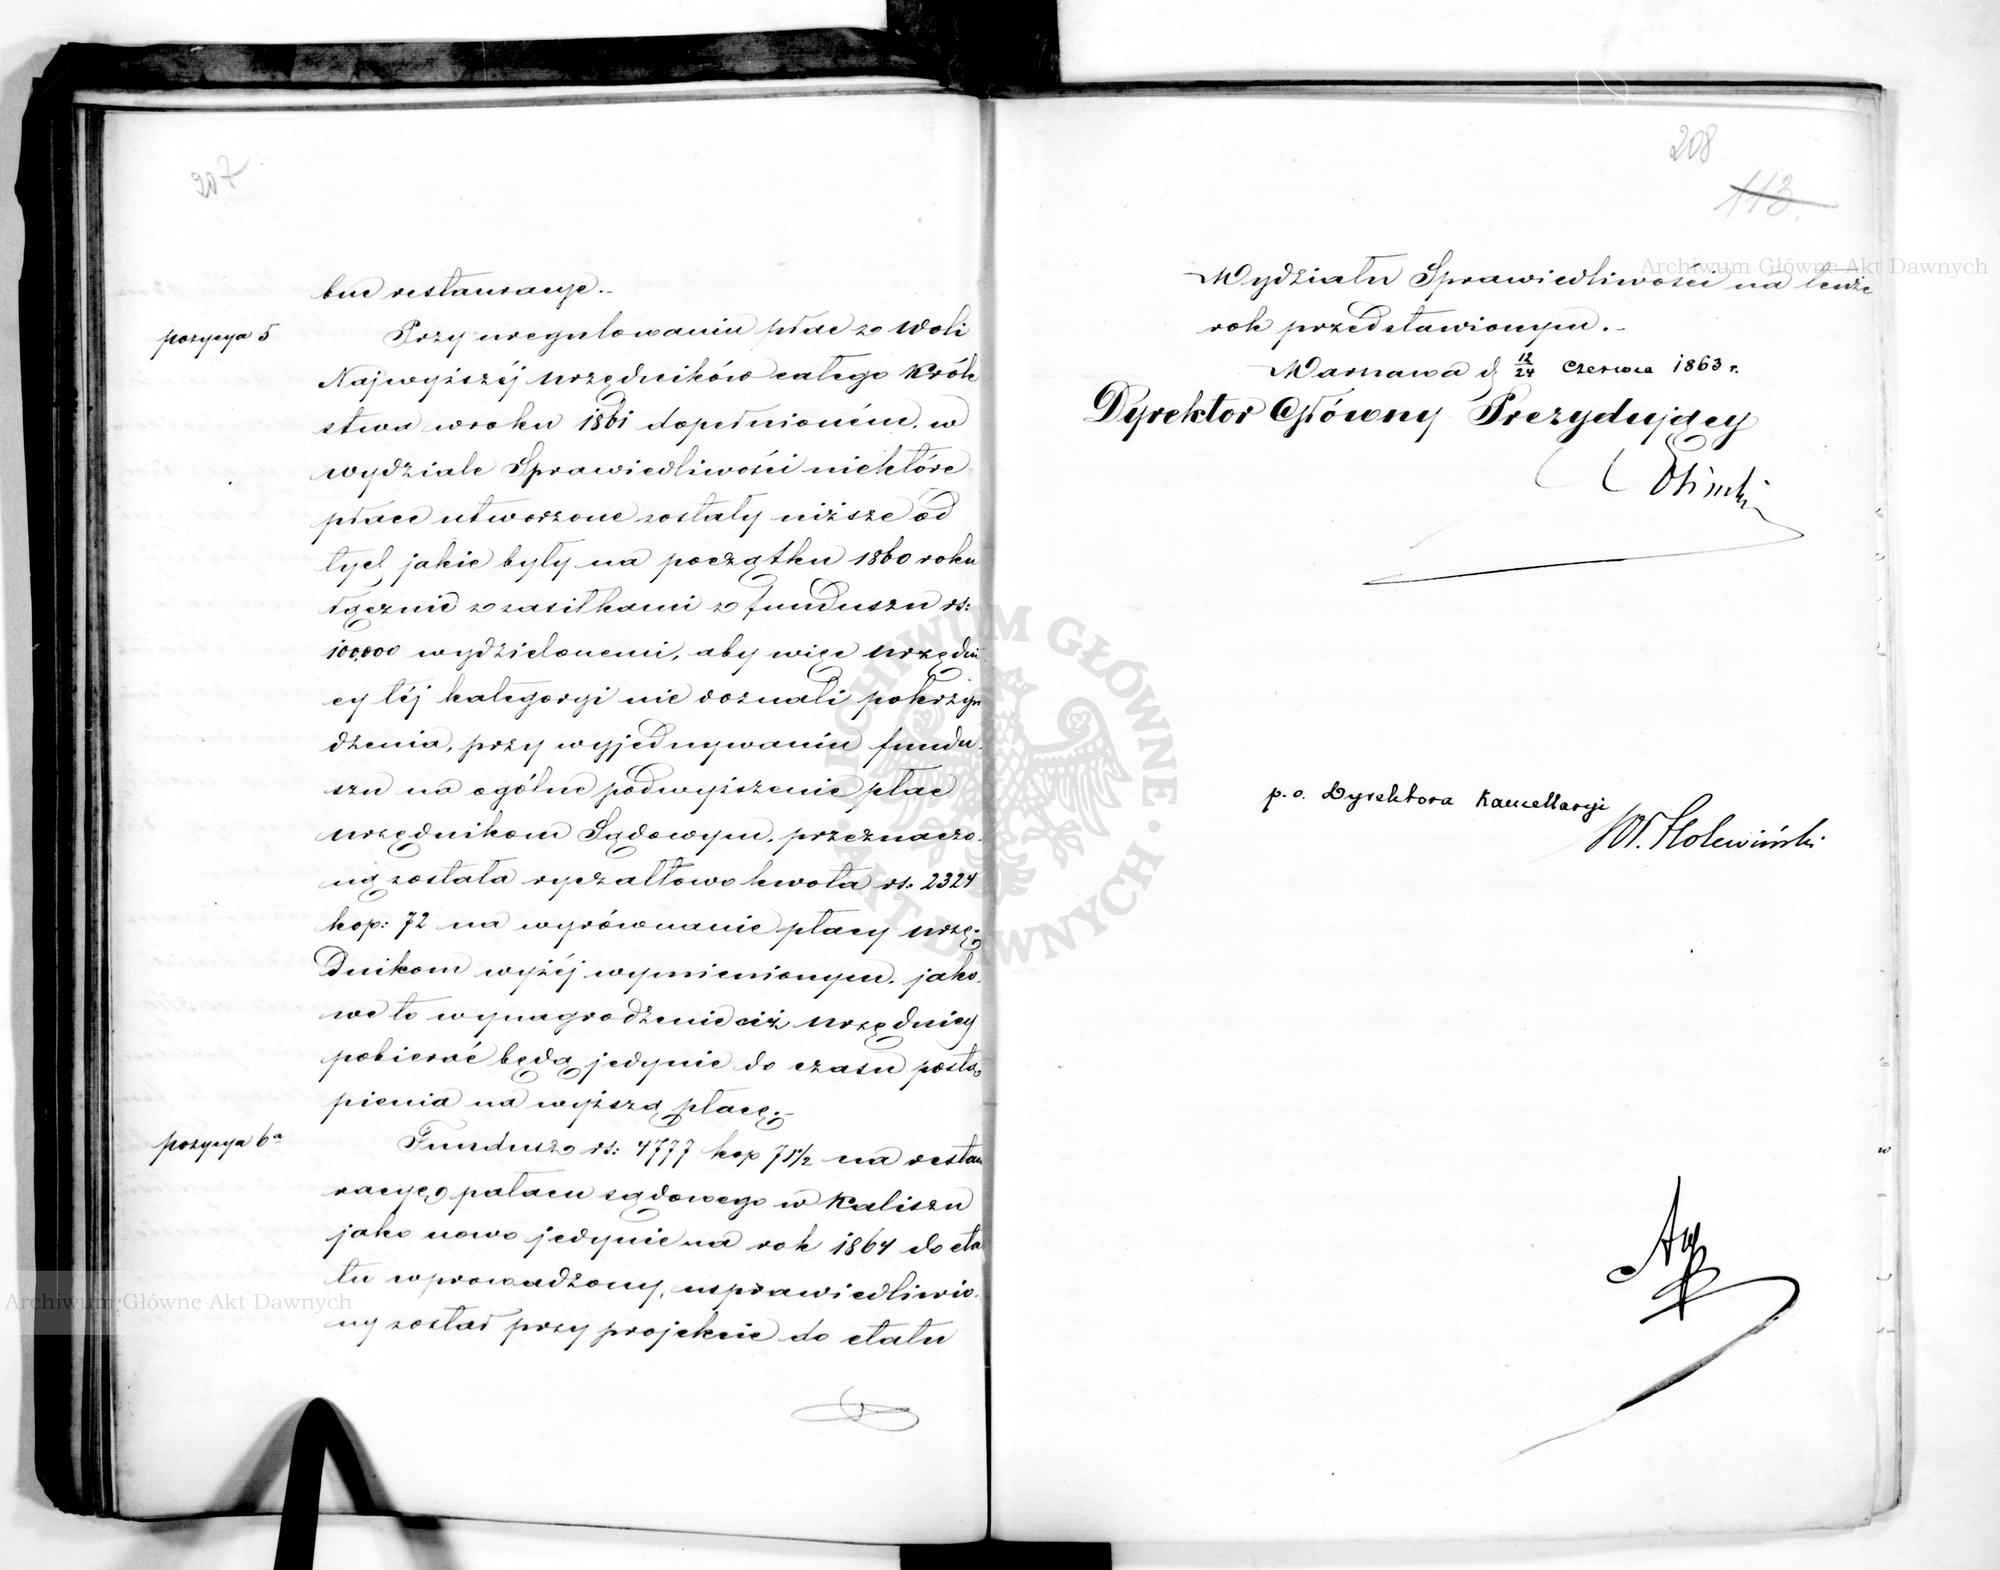 207
bne restauracye.-
pozycya 5
Przy uregulowaniu płac z Woli
Najwyższéj urzędników całego Króle
stwa w roku 1861 dopełnioném, w
wydziale Sprawiedliwości niektóre
płace utworzone zostały niższe od
tych jakie były na początku 1860 roku
łącznie z zasiłkami z funduszu rs:
100,000 wydzielonemi, aby więc urzędni
cy téj kategoryi nie doznali pokrzyw
dzenia, przy wyjednywaniu fundu
szu na ogólne podwyższenie płac
urzędnikom Sądowym, przeznaczo
ną została ryczałtowo kwota rs. 2324
kop: 72 na wyrównanie płacy urzę-
dnikom wyżéj wymienionym, jako
we to wynagrodzenie ciż urzędnicy
pobierać będą jedynie do czasu postą
pienia na wyższą płacę.-
pozycya 6a
Fundusz rs: 4777 kop 71½ na restau
racyę pałacu sądowego w Kaliszu
jako nowo jedynie na rok 1864 do eta
tu wprowadzony, usprawiedliwio
ny został przy projekcie do etatu
208
113.
Wydziału Sprawiedliwości na tenże
rok przedstawionym.-
Warszawa d 12/24 Czerwca 1863 r.
Dyrektor Główny Prezydujący
p. o. Dyrektora Kancellaryi
W. Holewiński
Archiwum Główne Akt Dawnych
Archiwum Główne Akt Dawnych
ARCHIWUM GŁÓWNE · AKT DAWNYCH ·